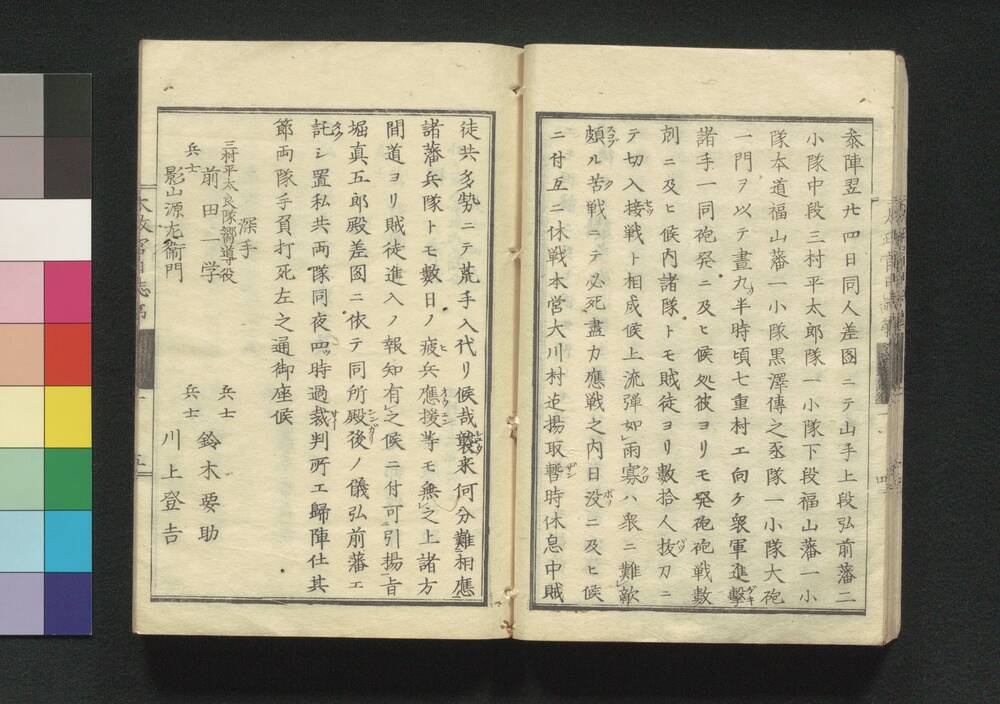 泰陣翌廿四日同人差図ニテ山手上段弘前藩二
小隊中段三村平太郎隊一小隊下段福山藩一小
隊本道福山藩一小隊黒澤傳之丞隊一小隊大砲
一門ヲ以テ晝九ッ半時頃七重村エ向ケ衆軍進擊
諸手一同砲発ニ及ヒ候処彼ヨリモ発砲砲戦数
刻ニ及ヒ候内諸隊トモ賊徒ヨリ數拾人抜刀ニ
テ切入接戦ト相成候上流弾如雨寡ハ衆ニ難敵
頗ル苦戦ニテ必死盡力應戦之内日没ニ及ヒ候
ニ付互ニ休戦本営大川村迠揚取暫時休息中賊
徒共多勢ニテ荒手入代リ候哉襲来何分難相應
諸藩兵隊トモ數日ノ疲兵應援等モ無之上諸方
間道ヨリ賊徒進入ノ報知有之候ニ付可引揚旨
堀真五郎殿差図ニ依テ同所殿後ノ儀弘前藩エ
託シ置私共両隊同夜四ッ時過裁判所エ歸陣仕其
節両隊手負打死左之通御座候
深手
三村平太良隊嚮導役
前田一学
兵士
鈴木要助
兵士
影山源左衞門
兵士
川上登吉